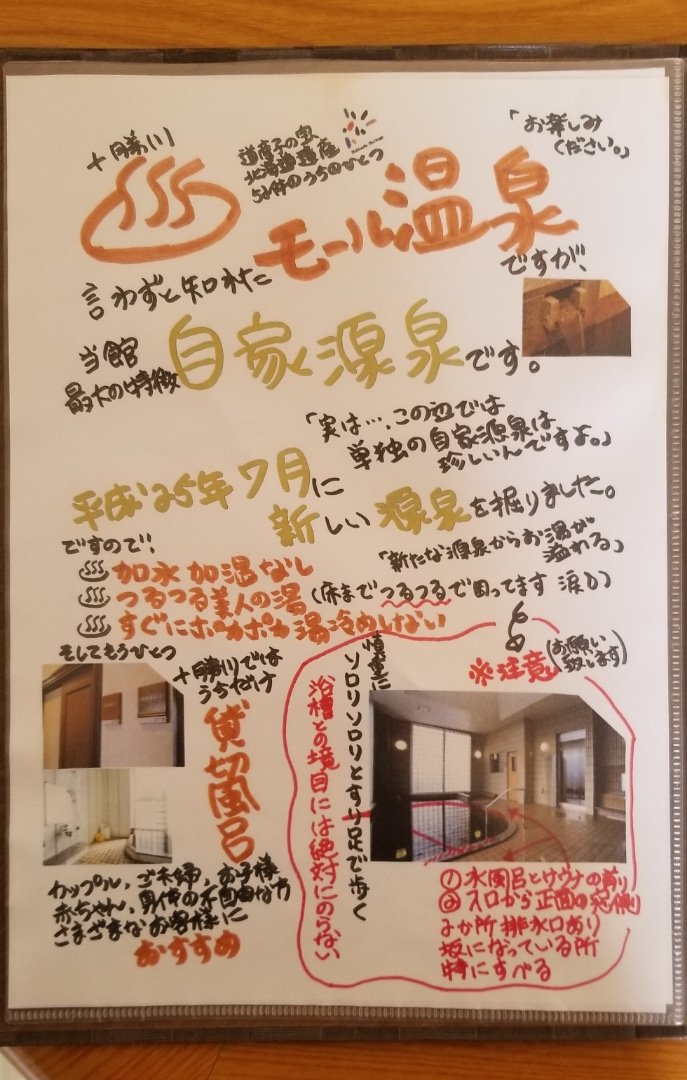 十勝川
道産子の宝
北海道遺産
52件のうちのひとつ
「お楽しみ
ください。」
モール温泉
言わずと知れた
ですが、
当館
最大の特徴
自家源泉です。
「実は…、この辺では
単独の自家源泉は
珍しいんですよ。」
平成25年7月に
新しい源泉を掘りました。
ですので!
「新たな源泉からお湯が
溢れる」
加水 加温なし
つるつる美人の湯
(床までつるつるで困ってます 涙)
すぐにポカポカ湯冷めしない
そしてもうひとつ
十勝川では
うちだけ
貸切風呂
カップル、ご夫婦、お子様
赤ちゃん、身体の不自由な方
さまざまなお客様に
おすすめ
※注意
(お願い
致します)
慎重に
ソロリソロリとすり足で歩く
浴槽との境目には絶対にのらない
①水風呂とサウナの前り
②入口から正面の窓側
2か所排水口あり
坂になっている所
特にすべる